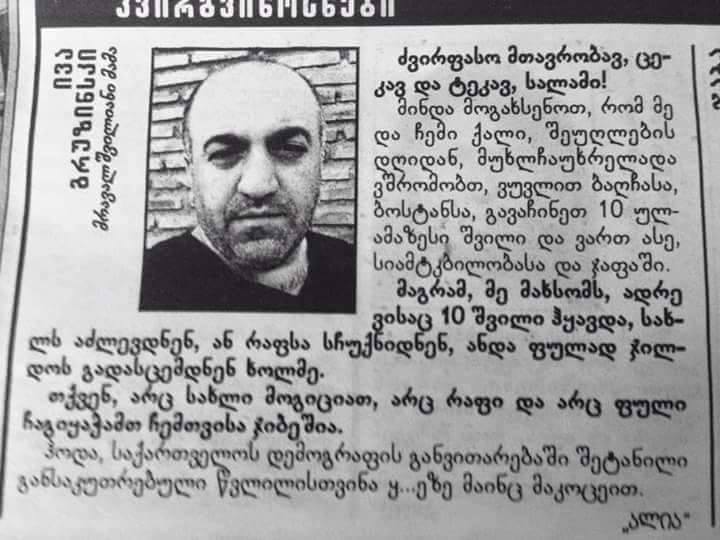 კვირგვინოსნები
ივა
გრუზინსკი
მრავალშვილიანი მამა
ძვირფასო მთავრობავ, ცე-
კავ და ტეკავ, სალამი!
მინდა მოგახსენოთ, რომ მე
და ჩემი ქალი, შეუღლების
დღიდან, მუხლჩაუხრელადა
ვშრომობთ, ვუვლით ბაღჩასა,
ბოსტანსა, გავაჩინეთ 10 ულ-
ამაზესი შვილი და ვართ ასე,
სიამტკბილობასა და ჯაფაში.
მაგრამ, მე მახსომს, ადრე
ვისაც 10 შვილი ჰყავდა, სახ-
ლს აძლევდნენ, ან რაფსა სჩუქნიდნენ, ანდა ფულად ჯილ-
დოს გადასცემდნენ ხოლმე.
თქვენ, არც სახლი მოგიციათ, არც რაფი და არც ფული
ჩაგიყაჭამთ ჩემთვისა ჯიბეშია.
ჰოდა, საქართველოს დემოგრაფის განვითარებაში შეტანილი
განსაკუთრებული წვლილისთვინა ყ...ეზე მაინც მაკოცეით.
„ალია“